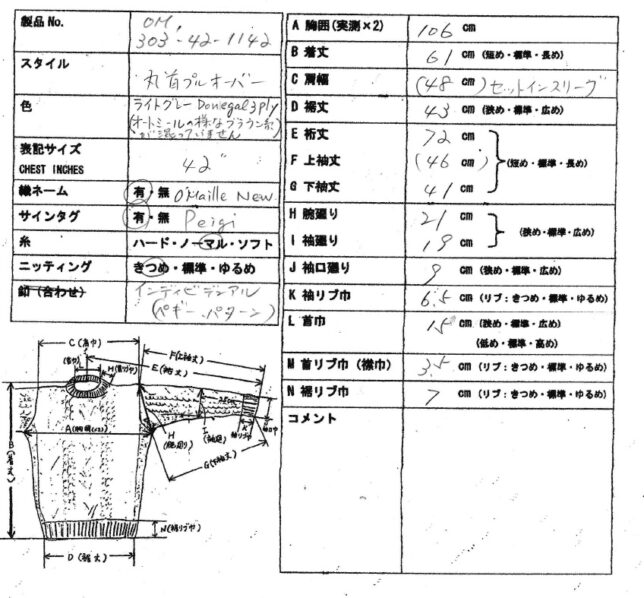 製品No.
OM,
303-42-1142
スタイル
丸首プルオーバー
色
ライトグレー Donegal 3ply
(オートミールの様なブラウン系
が混っていません)
表記サイズ
CHEST INCHES
42"
織ネーム
有・無 O'Maille New
サインタグ
有・無 Peigi
糸
ハード・ノーマル・ソフト
ニッティング
きつめ・標準・ゆるめ
釦（合わせ）
インディビデュアル
(ペギー・パターン)
A 胸囲(実測×2) 106 cm
B 着丈 61 cm (短め・標準・長め)
C 肩幅 (48 cm) セットインスリーブ
D 裾丈 43 cm (狭め・標準・広め)
E 裄丈 72 cm
F 上袖丈 (46 cm) (短め・標準・長め)
G 下袖丈 41 cm
H 腕廻り 21 cm
I 袖廻り 19 cm (狭め・標準・広め)
J 袖口廻り 9 cm (狭め・標準・広め)
K 袖リブ巾 6.5 cm (リブ：きつめ・標準・ゆるめ)
L 首巾 18 cm (狭め・標準・広め)
(低め・標準・高め)
M 首リブ巾（襟巾） 3.5 cm (リブ：きつめ・標準・ゆるめ)
N 裾リブ巾 7 cm (リブ：きつめ・標準・ゆるめ)
コメント
C (肩巾)
F(上袖丈)
E (裄丈)
L
(首巾)
M(首リブ巾)
A(胸囲1/2)
B(着丈)
H
(腕廻り)
I
(袖廻)
K
袖リブ巾
G(下袖丈)
N(裾リブ巾)
D (裾丈)